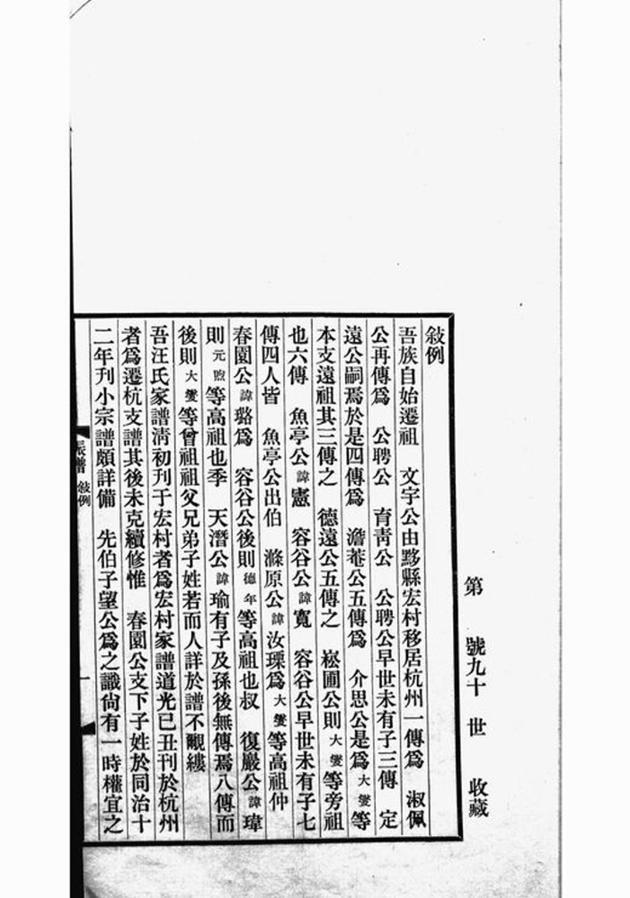 第 號九十 世 收藏
敍例
吾族自始遷祖 文宇公由黟縣宏村移居杭州一傳爲 淑佩
公再傳爲 公聘公 育青公 公聘公早世未有子三傳 定
遠公嗣焉於是四傳爲 澹菴公五傳爲 介思公是爲大燮等
本支遠祖其三傳之 德遠公五傳之 崧圃公則大燮等旁祖
也六傳 魚亭公諱憲 容谷公諱寬 容谷公早世未有子七
傳四人皆 魚亭公出伯 滌原公諱汝瑮爲大燮等高祖仲
春園公諱璐爲 容谷公後則德年等高祖也叔 復巖公諱瑋
則元煦等高祖也季 天潛公諱瑜有子及孫後無傳焉八傳而
後則大燮等曾祖祖父兄弟子姓若而人詳於譜不覼縷
吾汪氏家譜淸初刊于宏村者爲宏村家譜道光已丑刊於杭州
者爲遷杭支譜其後未克續修惟 春園公支下子姓於同治十
二年刊小宗譜頗詳備 先伯子望公爲之識尙有一時權宜之
振譜 敍例
一